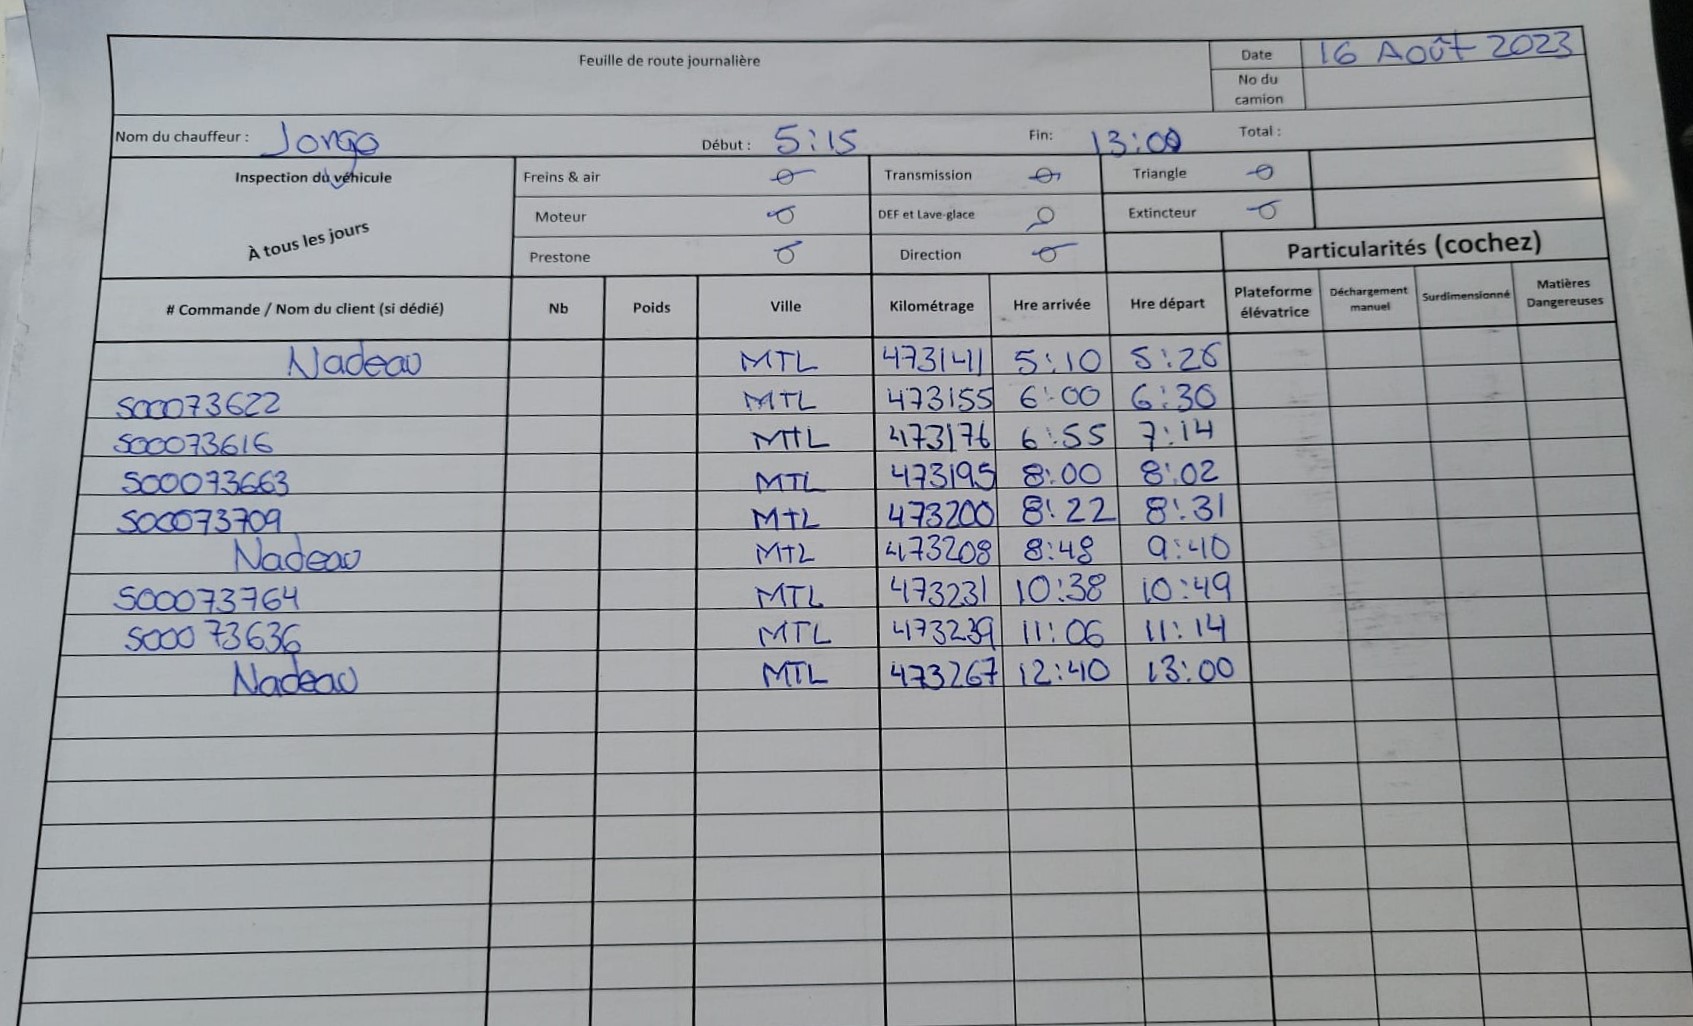 Feuille de route journalière Date 16 Août 2023
No du camion
Nom du chauffeur : Jorgo Début : 5:15 Fin: 13:00 Total :
Inspection du véhicule Freins & air Transmission Triangle
À tous les jours Moteur DEF et Lave-glace Extincteur
Prestone Direction Particularités (cochez)
# Commande / Nom du client (si dédié) Nb Poids Ville Kilométrage Hre arrivée Hre départ Plateforme élévatrice Déchargement manuel Surdimensionné Matières Dangereuses
Nadeau MTL 473141 5:10 5:26
S00073622 MTL 473155 6:00 6:30
S00073616 MTL 473176 6:55 7:14
S00073663 MTL 473195 8:00 8:02
S00073709 MTL 473200 8:22 8:31
Nadeau MTL 473208 8:48 9:40
S00073764 MTL 473231 10:38 10:49
S00073636 MTL 473239 11:06 11:14
Nadeau MTL 473267 12:40 13:00